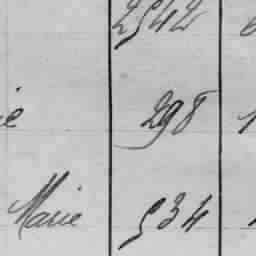 2542
298
Marie 534